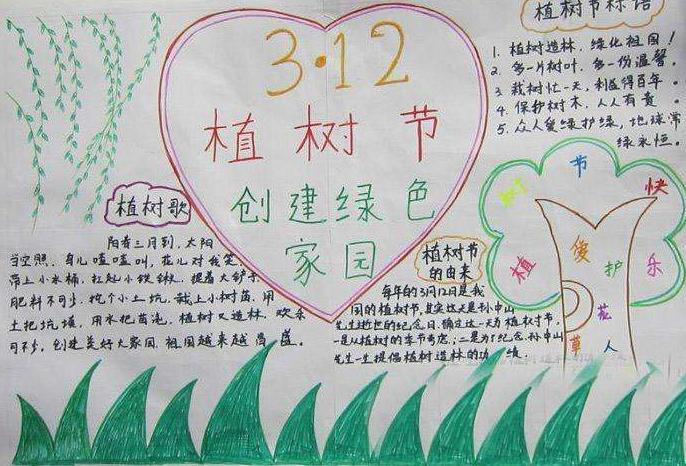 3·12
植 树 节
创建绿色
家园
植树节标语
1. 植树造林，绿化祖国！
2. 多一片树叶，多一份温馨。
3. 栽树忙一天，利益得百年。
4. 保护树木，人人有责。
5. 众人爱绿护绿，地球常
绿永恒。
植树歌
阳春三月到，太阳
当空照，鸟儿喳喳叫，花儿对我笑。
带上小水桶，扛起小铁锹，提着大铲子
肥料不可少，挖个小土坑，栽上小树苗，用
土把坑填，用水把苗浇，植树又造林，欢乐
可不少，创建美好大家园，祖国越来越
植树节
的由来
每年的3月12日是我
国的植树节，其实这天是孙中山
先生逝世的纪念日，确定这一天为植树节，
一是从植树的季节考虑；二是为了纪念孙中山
先生一生提倡植树造林的功绩。
植 树 节 快 乐
爱 护
花
草 人